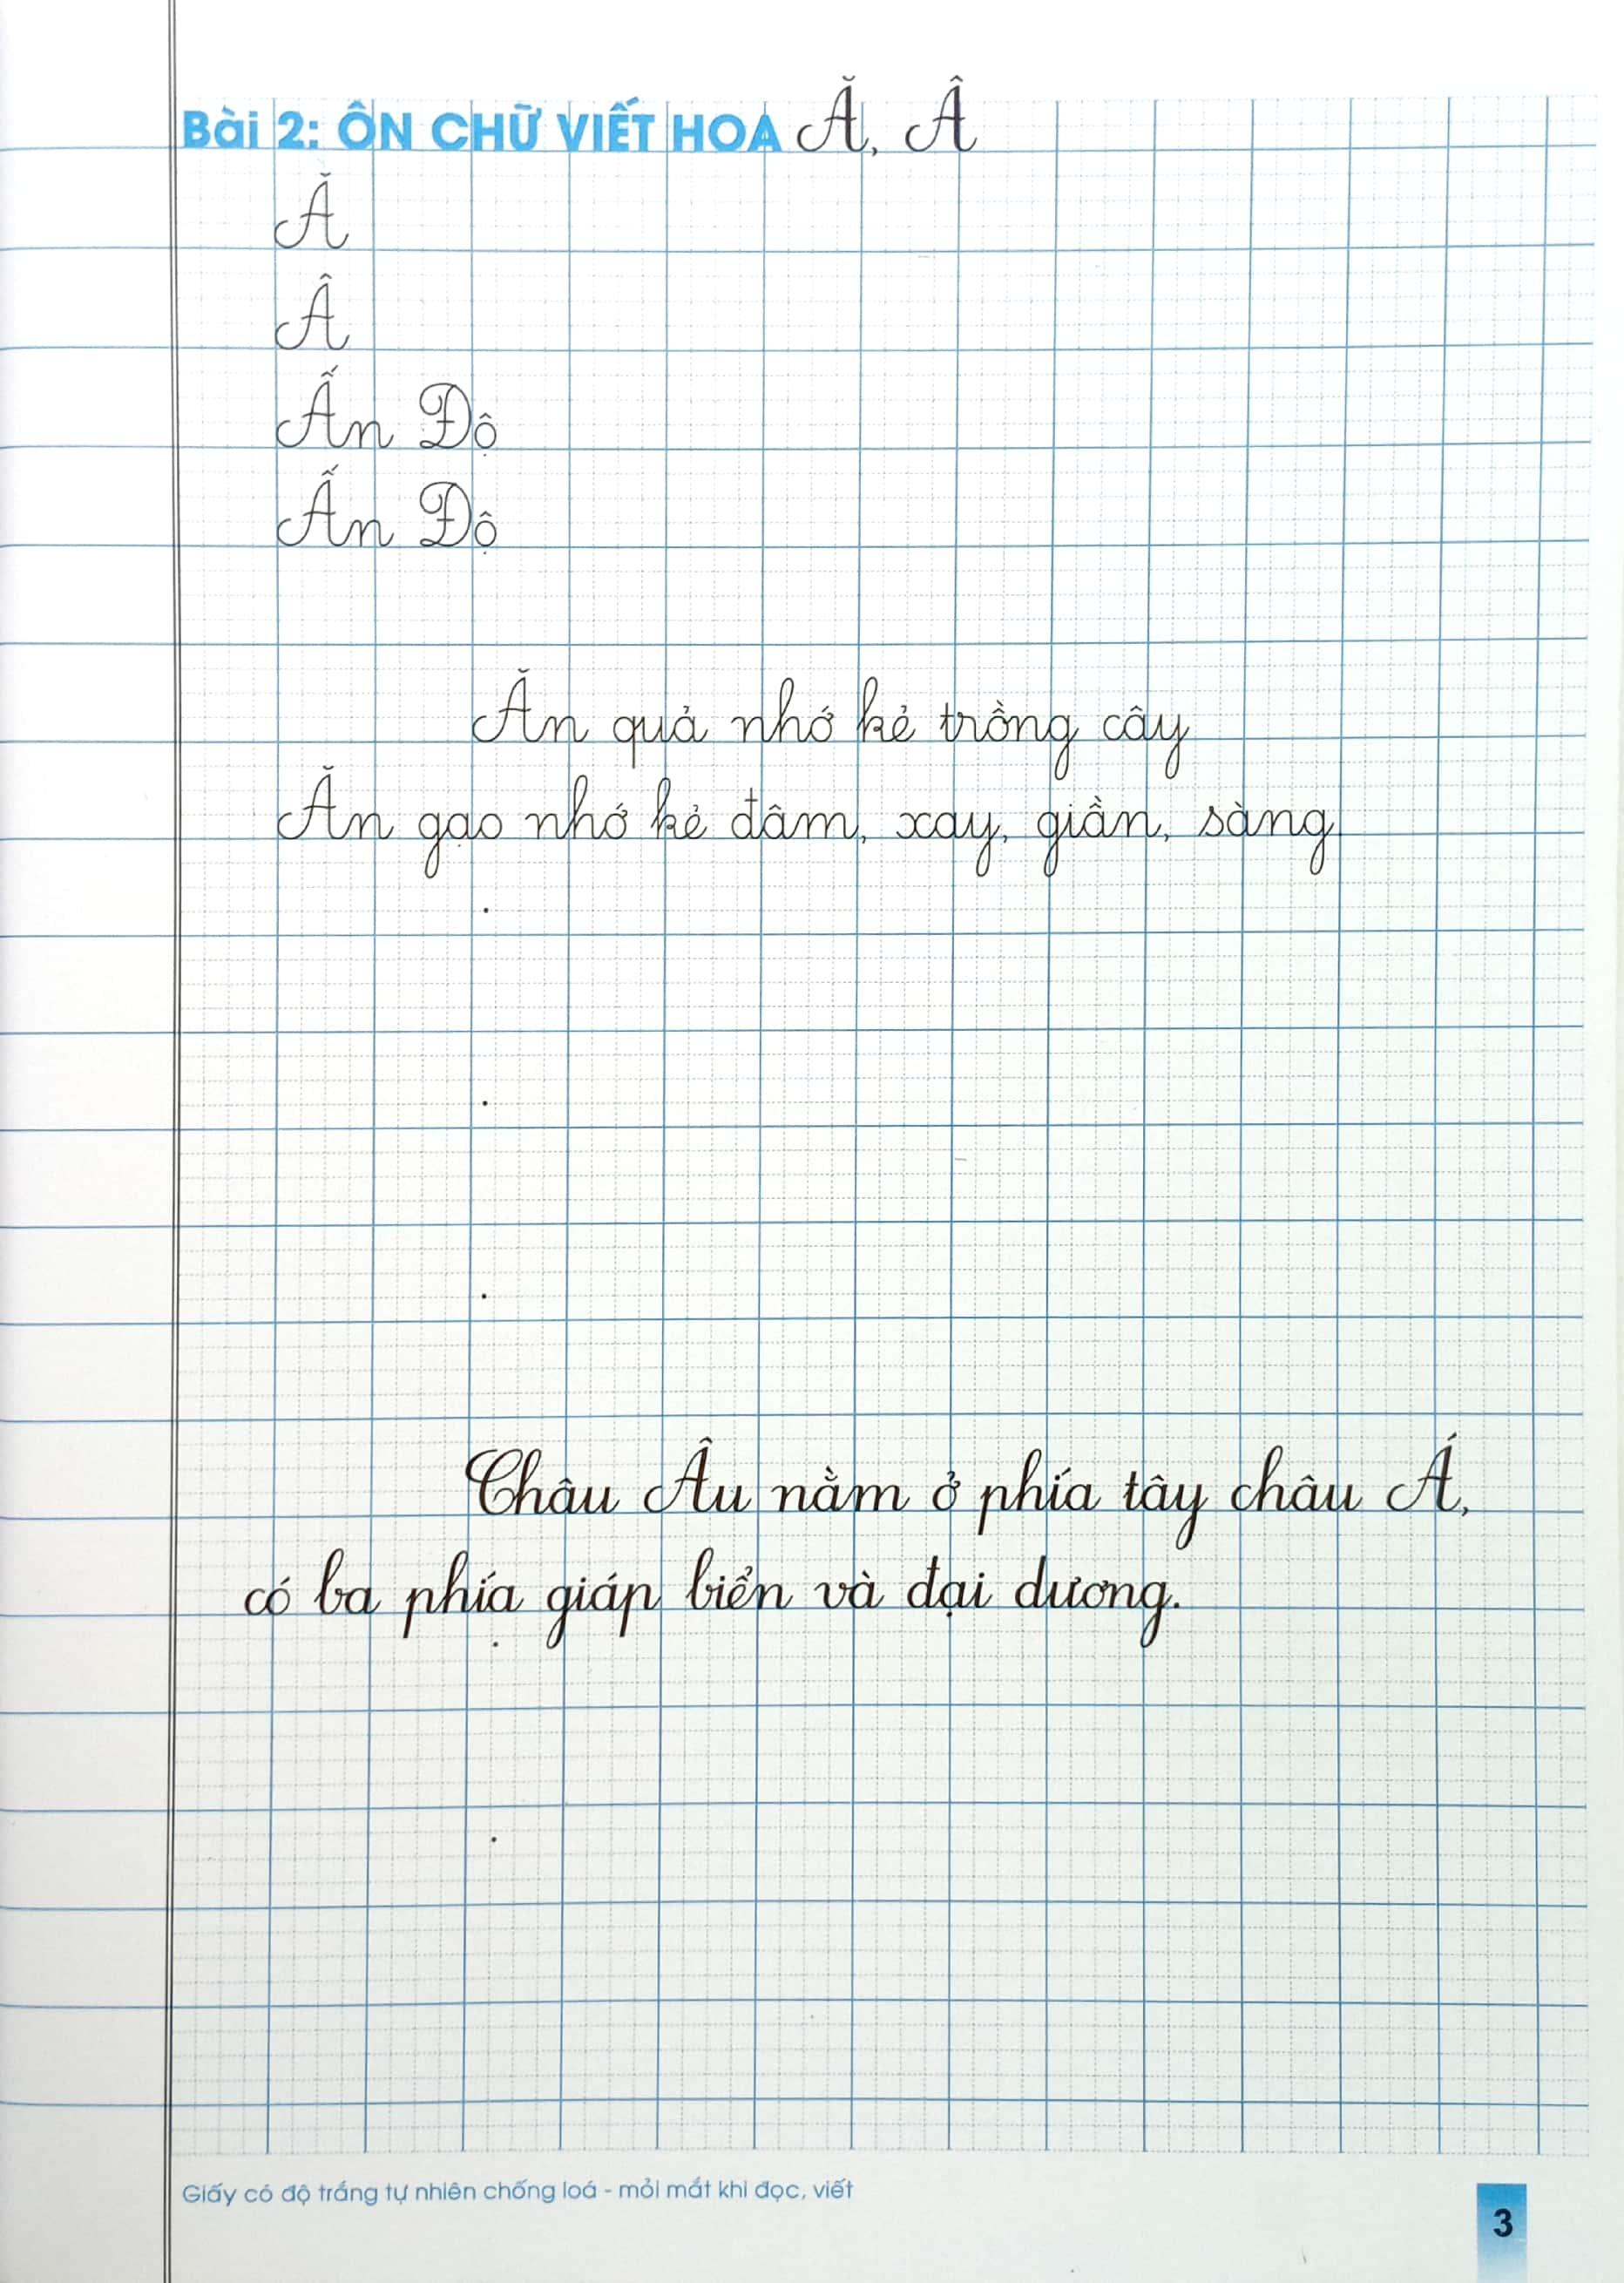 Bài 2: ÔN CHỮ VIẾT HOA Ă, Â
Ă
Â
Ấn Độ
Ấn Độ
Ăn quả nhớ kẻ trồng cây
Ăn gạo nhớ kẻ đâm, xay, giần, sàng
Châu Âu nằm ở phía tây châu Á,
có ba phía giáp biển và đại dương.
Giấy có độ trắng tự nhiên chống loá - mỏi mắt khi đọc, viết
3